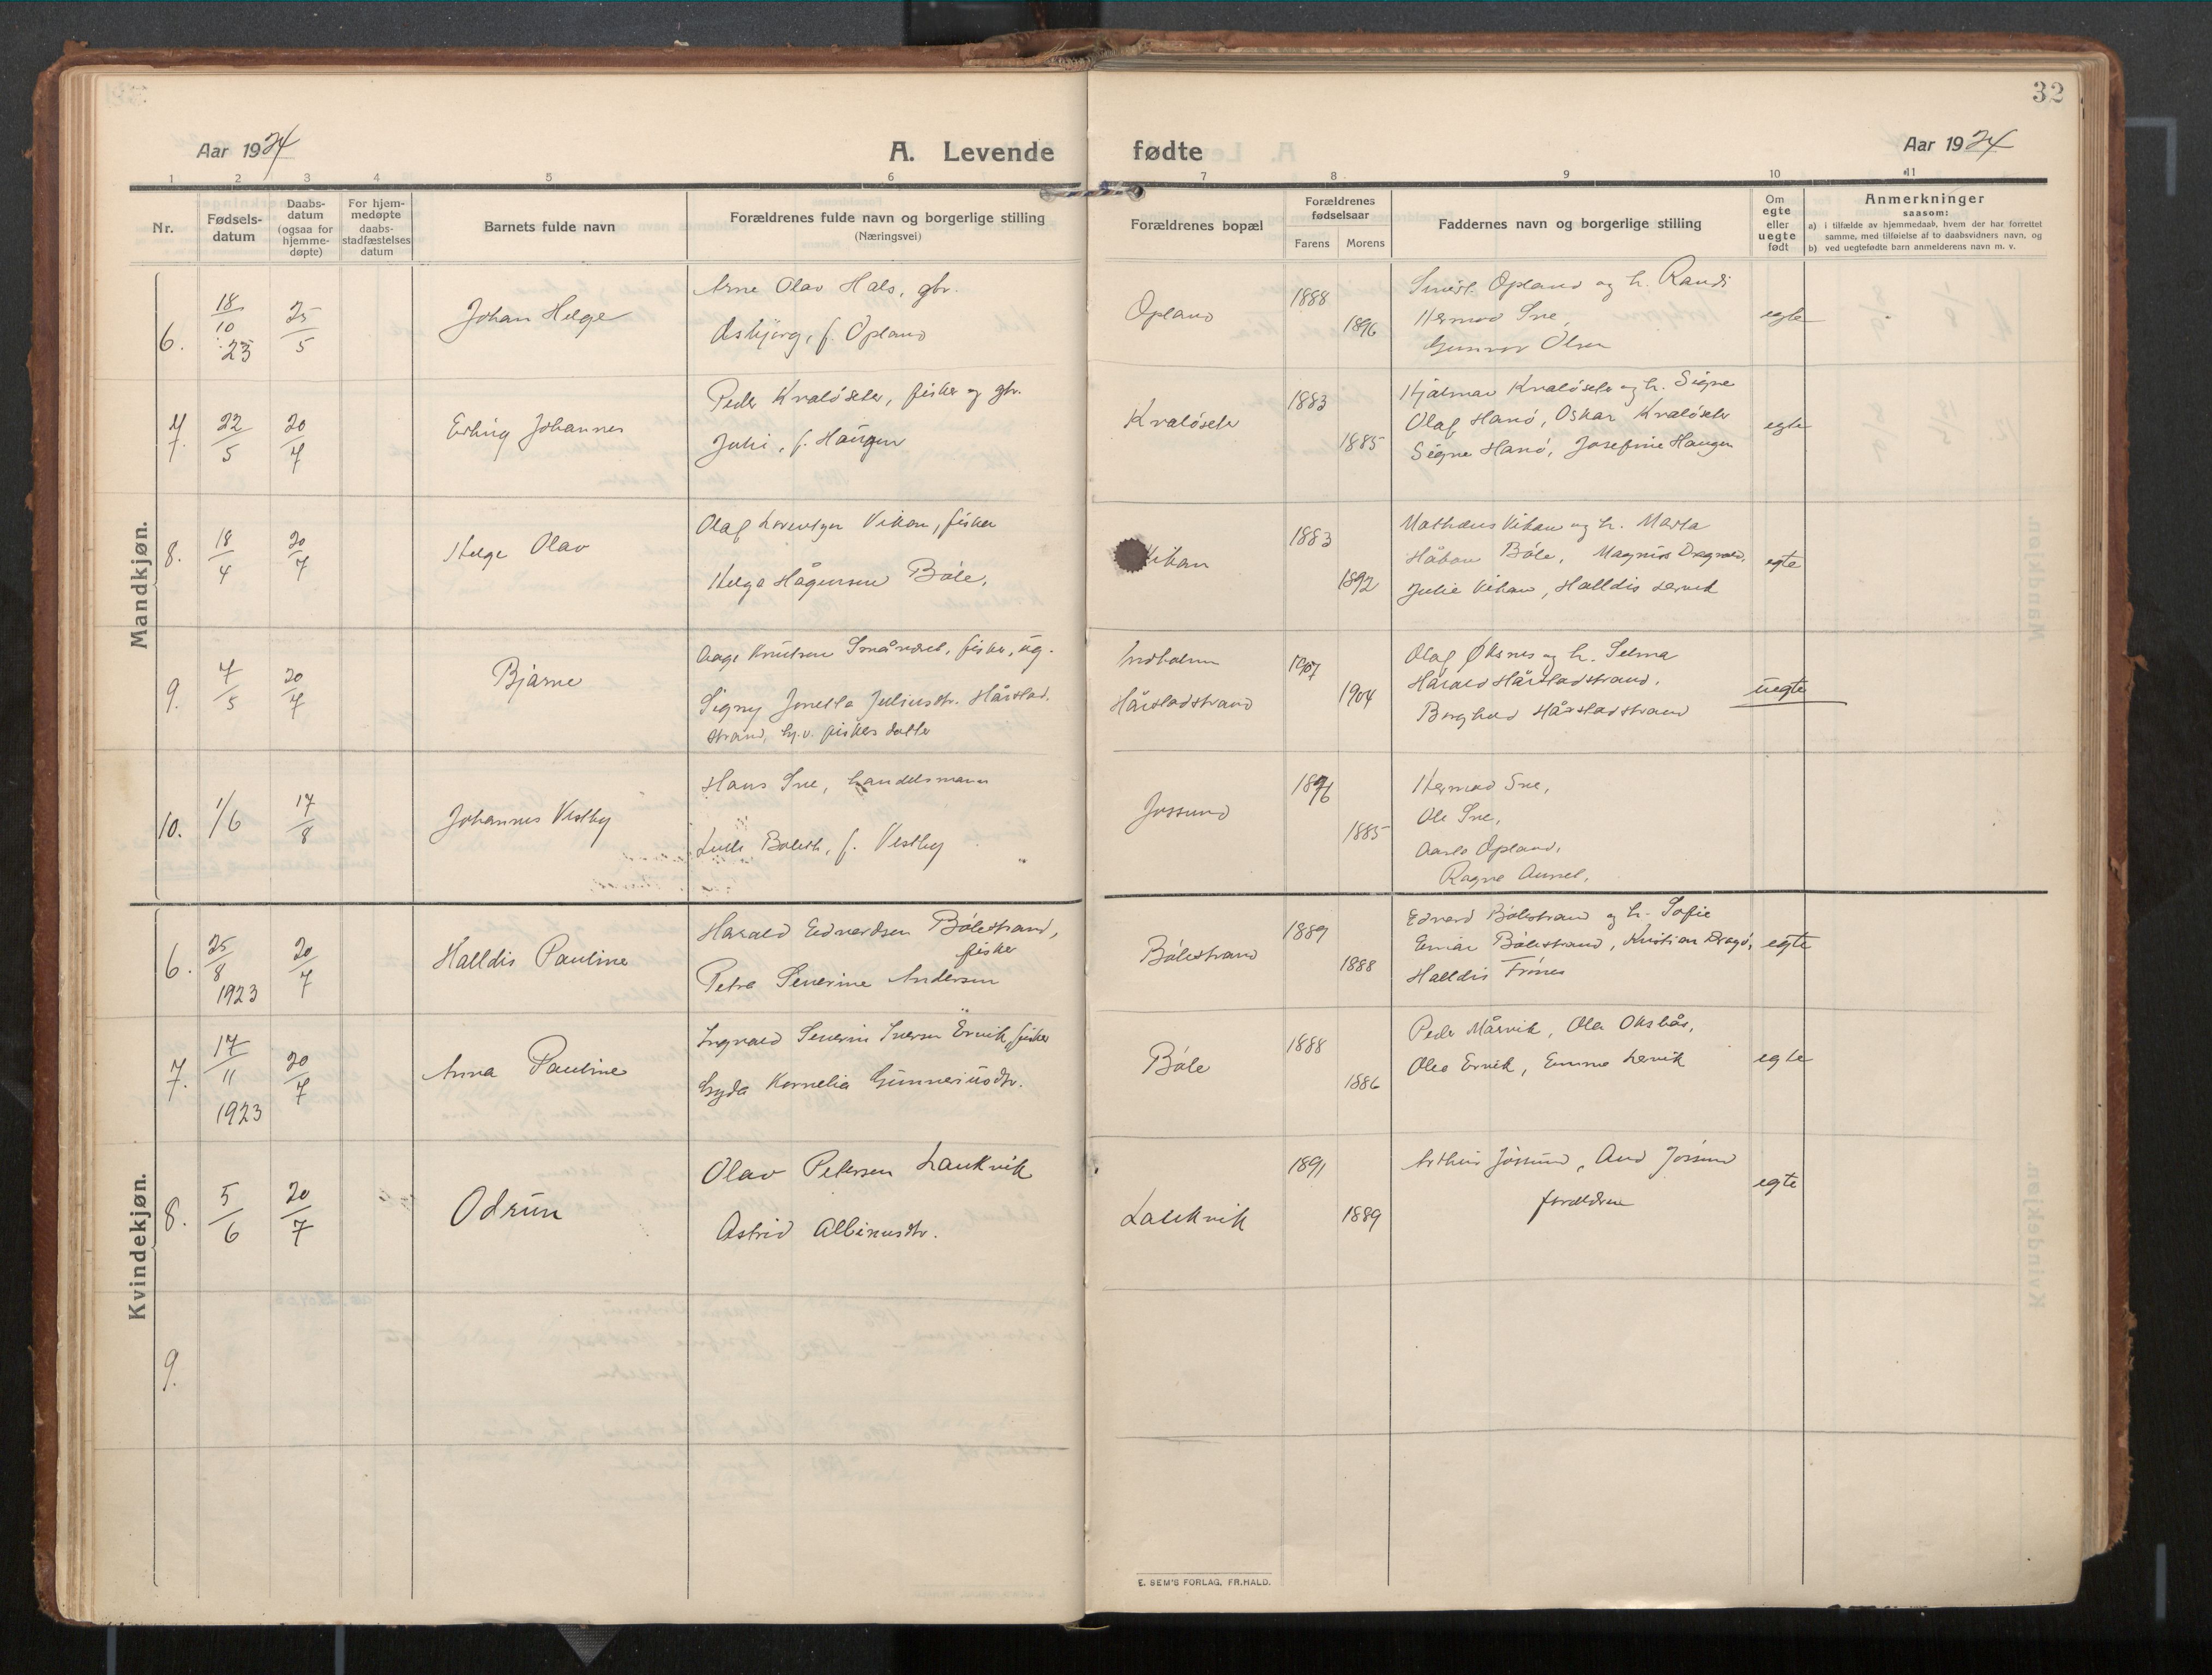 32
Aar 1924
A. Levende fødte
Aar 1924
1 2 3 4 5 6 7 8 9 10 11
Nr.
Fødsels-
datum
Daabs-
datum
(ogsaa for
hjemme-
døpte)
For hjem-
medøpte
daabs-
stadfæstelses
datum
Barnets fulde navn
Forældrenes fulde navn og borgerlige stilling
(Næringsvei)
Forældrenes bopæl
Forældrenes
fødselsaar
Farens Morens
Faddernes navn og borgerlige stilling
Om
egte
eller
uegte
født
Anmerkninger
saasom:
a) i tilfælde av hjemmedaab, hvem der har forrettet
samme, med tilføielse af to daabsvidners navn, og
b) ved uegtefødte barn anmelderens navn m. v.
Mandkjøn.
6. 18/10 23 25/5 Johan Helge
Arne Olav Hals, gbr.
Asbjørg, f. Opland
Opland 1888 1896
Opland og h. Randi
Hermod Sve,
Gunvor Olsen
egte
7. 22/5 20/7 Erling Johannes
Peder Kvaløseter, fisker og gbr.
Juli, f. Haugen
Kvaløseter 1883 1885
Hjalmar Kvaløseter og h. Signe
Olaf Hanø, Oskar Kvaløseter
Signe Hanø, Josefine Haugen
egte
8. 18/4 20/7 Helge Olav
Olaf Lorentsen Vikan, fisker
Helga Hågensen Bøle,
Vikan 1883 1892
Mathæus Vikan og h. Marta
Håkon Bøle, Magnus
Julie Vikan, Halldis Lervik
egte
9. 7/5 20/7 Bjarne
Aage Knutsen Småværet, fisker, ug.
Signy Jonella Juliusdtr. Hårstad-
strand, hj.v. fiskerdatter
Indholmen
Hårstadstrand
1907 1904
Olaf Øksnes og h. Selma
Harald Hårstadstrand,
Borghild Hårstadstrand
uegte
10. 1/6 17/8 Johannes Vestby
Hans Sve, handelsmann
Boleth, f. Vestby
Jøssund 1896 1885
Hermod Sve,
Ole Sve,
Opland,
Ragna
Kvindekjøn.
6. 25/8 1923 20/7 Halldis Pauline
Harald Edvardsen Bølestrand,
fisker
Petra Severine Andersen
Bølestrand 1889 1888
Edvard Bølestrand og h. Sofie
Einar Bølestrand, Kristian Dragø,
Halldis Frønes
egte
7. 17/11 1923 20/7 Anna Pauline
Ingvald Severin Iversen Ervik, fisker
Gyda Kornelia Gunneriusdtr.
Bøle 1888 1886
Peder Mårvik, Ola Oksbås,
Olea Ervik, Emma Lervik
egte
8. 5/6 20/7 Odrun
Olav Petersen Laukvik
Astrid Albinusdtr.
Laukvik 1891 1889
Arthur Jøssund, Aud Jøssund
foreldrene
egte
9.
E. SEM'S FORLAG, FR.HALD.